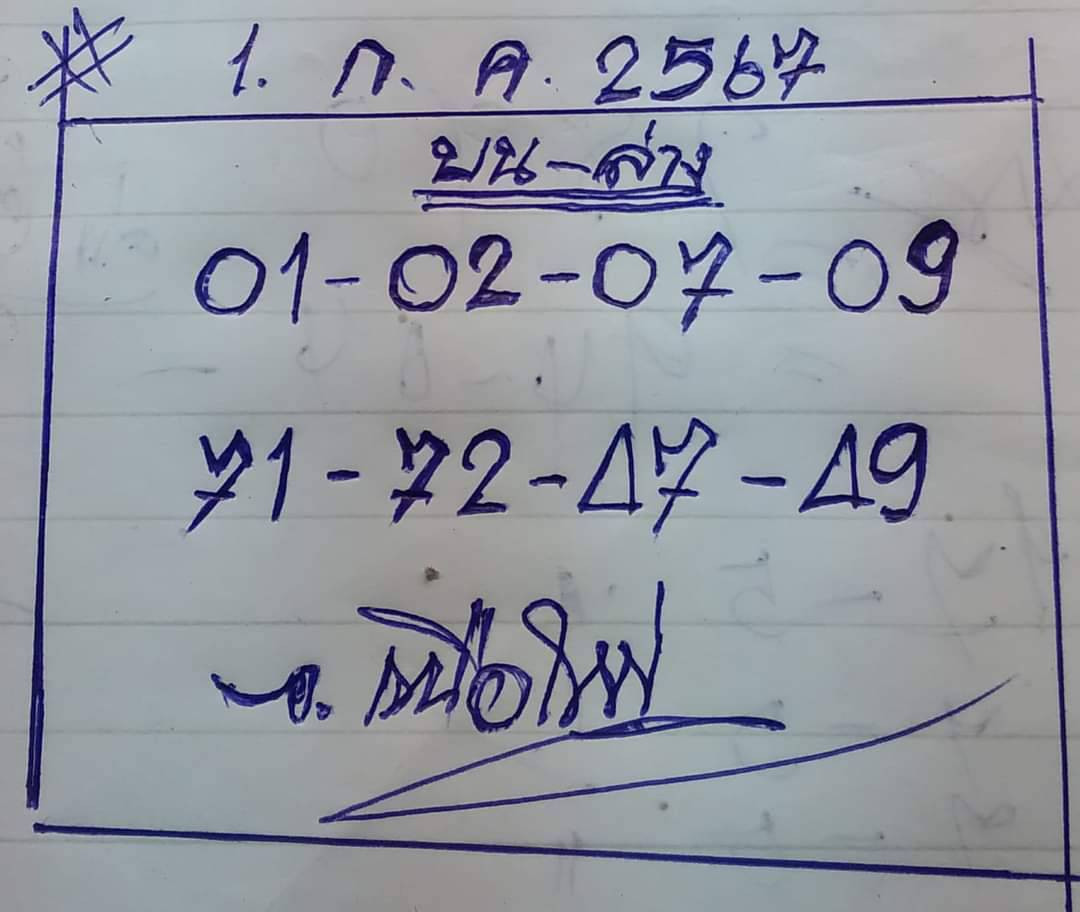 1. ก. ค. 2567
บน-ล่าง
01-02-07-09
71-72-47-49
อ.